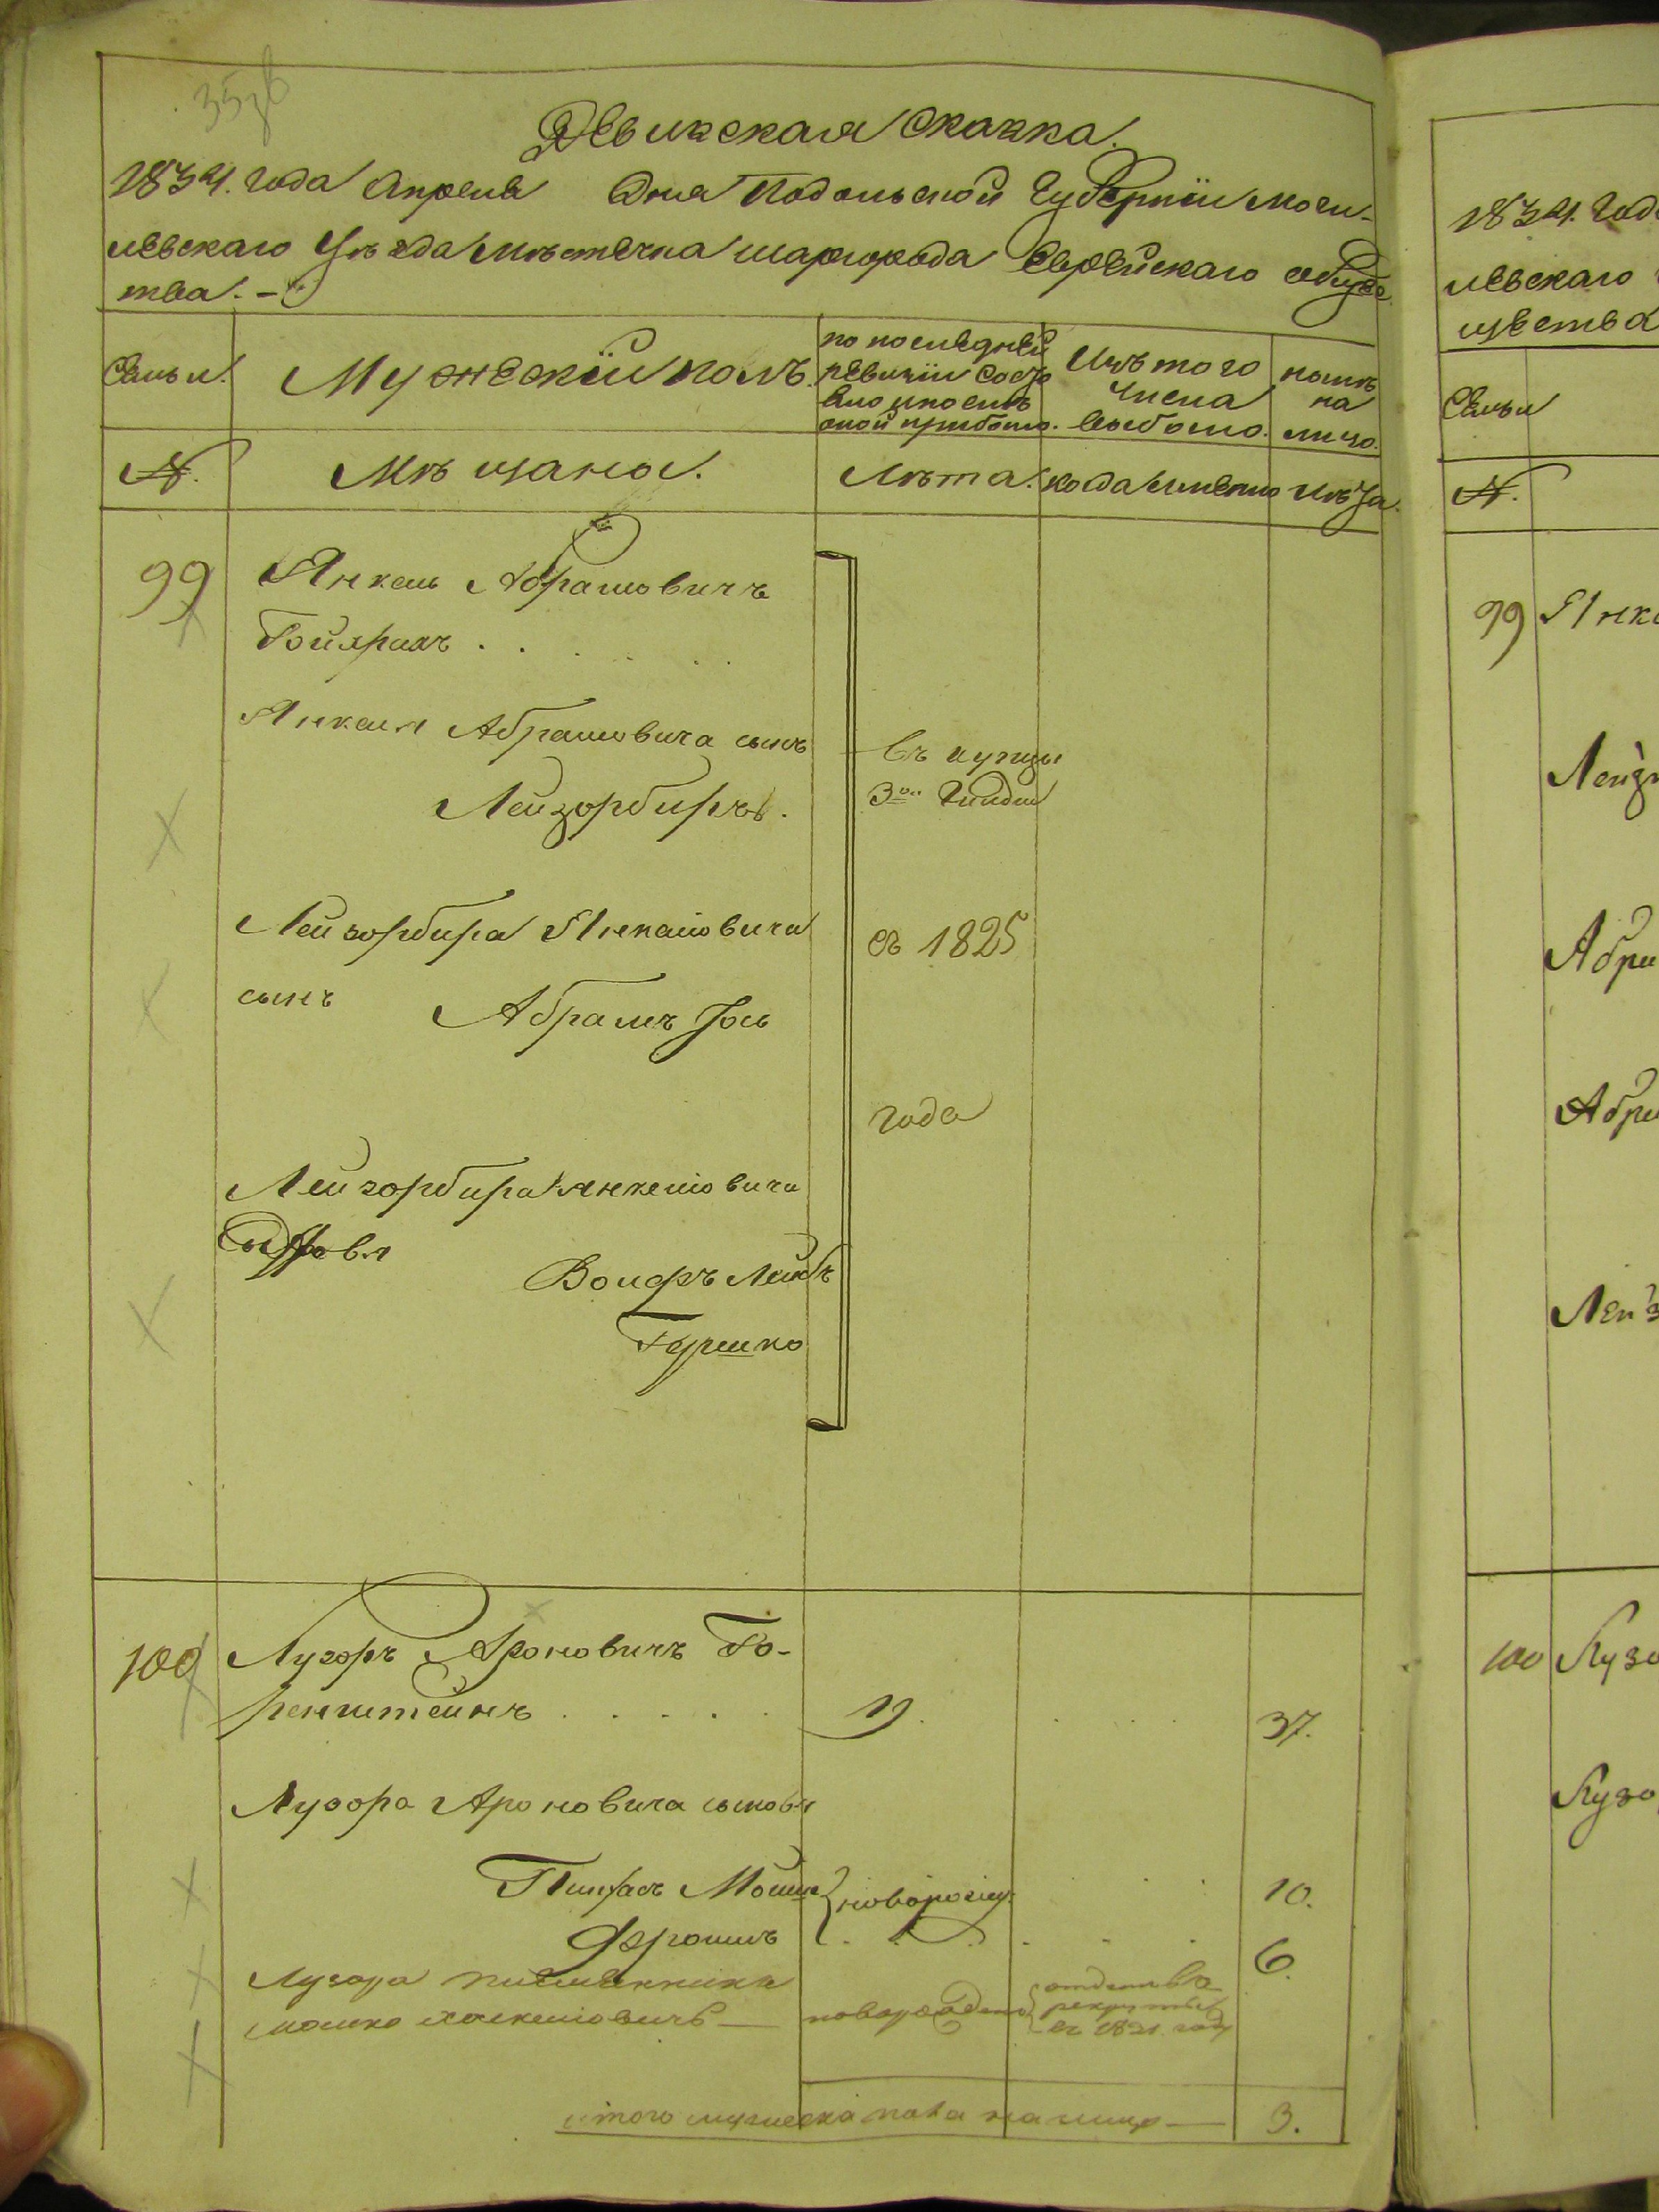 Ревижская сказка.
1834. года Апреля Дня Подольской Губернїи Моги-
левскаго Уѣзда мѣстечка шаргорода Еврейскаго общес
тва. -
Семьи.
Мужескїй полъ.
по последней
ревизїи состо
яло и после
оной прибыло.
Изъ того
числа
выбыло.
ныне
на
лицо.
№.
Мѣщаны.
Лѣта.
когда именно
Лѣта.
99
Янкель Абрамовичъ
Янкеля Абрамовича сынъ
Лейзорбиръ.
въ купцы
3ей Гильдии
Лейзорбира Янкелiовича
сынъ Абрамъ Iось
съ 1825
года
Лейзорбира Янкелiовича
сыновья
Волфъ Лейбъ
Гершко
100
Лузоръ Ароновичъ Го-
ренштейнъ . . . . .
19.
37.
Лузора Ароновича сыновья
Пинхасъ Мошко
новорожд:
10.
Фроимъ
6.
Лузора племянникъ
мошко хаскелiовичъ —
новорожденъ
отданъ въ
рекруты
въ 1831. году
итого мужеска пола на лицо —
3.
1834. Года
левскаго
щества
Семьи
№.
99
Янке
Лейз
Абра
Абра
Лейз
100
Лузо
Лузо